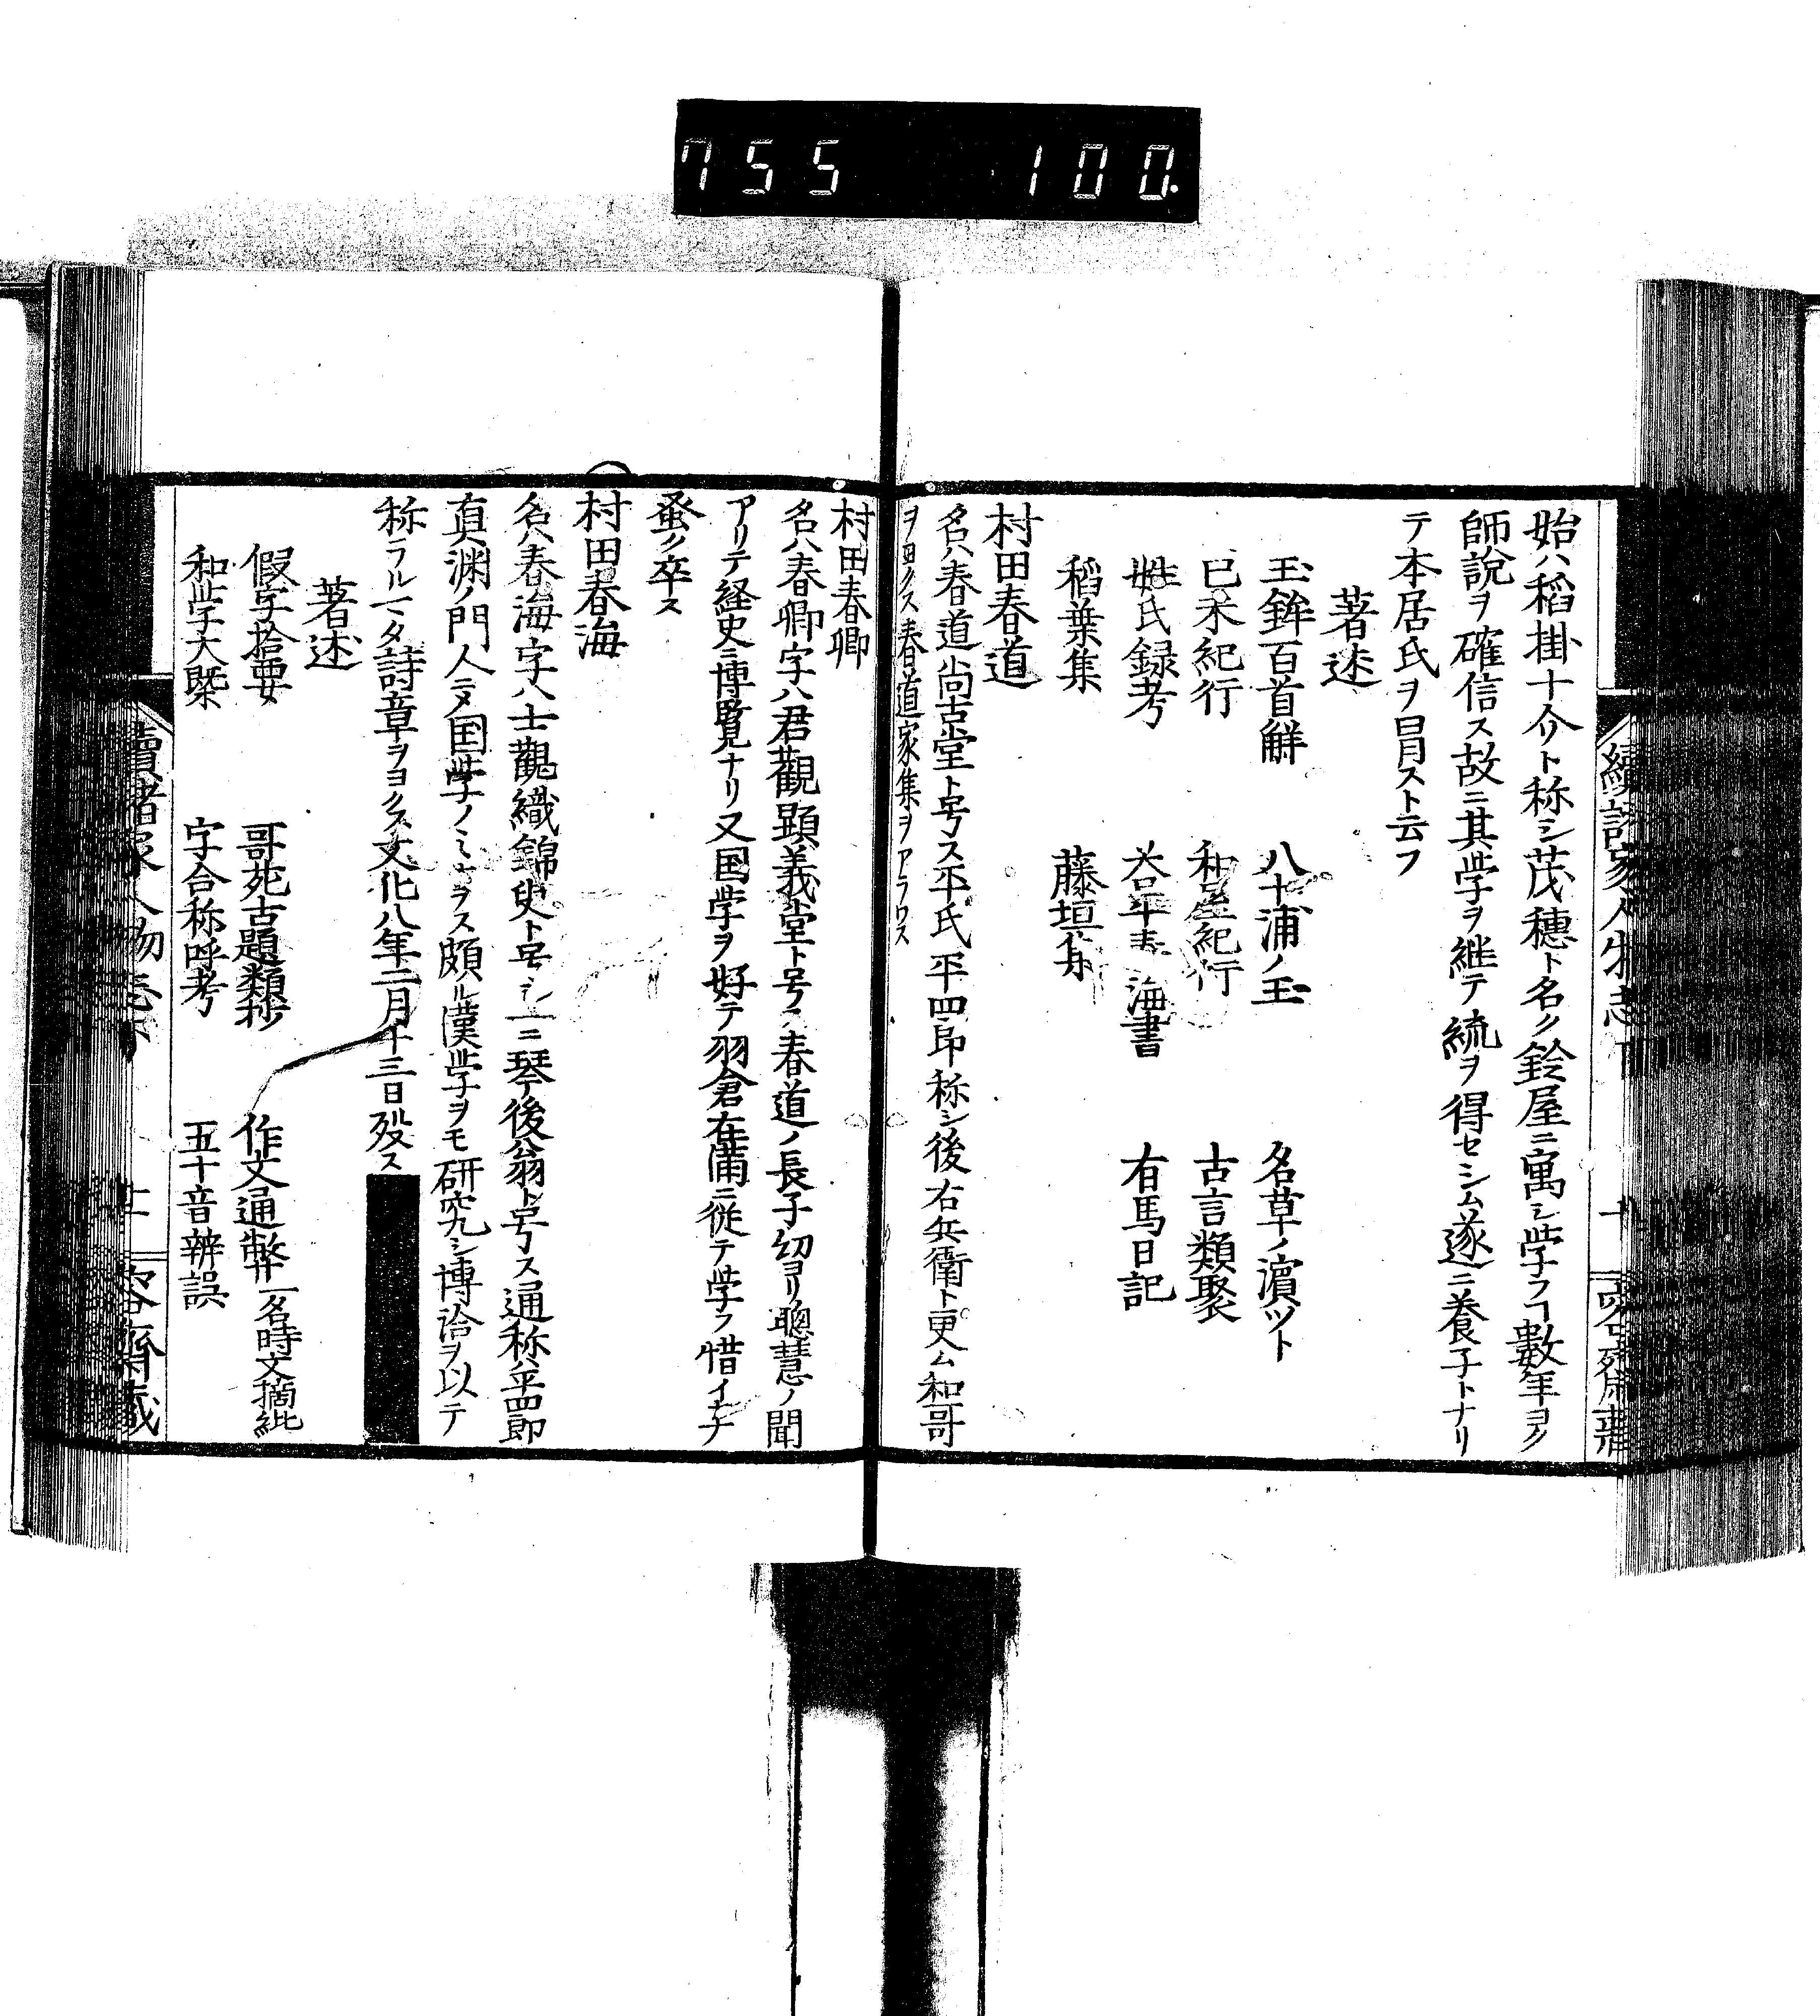 755 100.
始ハ稻掛十介ト称シ茂穂ト名ク鈴屋ニ寓シ学フヿ数年ヨク
師説ヲ確信ス故ニ其学ヲ継テ統ヲ得セシム遂ニ養子トナリ
テ本居氏ヲ冒スト云フ
著述
玉鉾百首解 八十浦ノ玉 名草ノ濵ツト
巳未紀行 和屋紀行 古言類聚
姓氏録考 海書 有馬日記
稻葉集 藤垣内
村田春道
名ハ春道尚古堂ト号ス平氏平四郎称シ後右兵衛ト更ム和哥
ヲヨクス春道家集ヲアラワス
村田春卿
名ハ春卿字ハ君觀顕義堂ト号ス春道ノ長子幼ヨリ聰慧ノ聞
アリテ経史ニ博覧ナリ又国学ヲ好テ羽倉在満ニ従テ学フ惜イカナ
蚤ク卒ス
村田春海
名ハ春海字ハ士觀織錦叟ト号シ一ニ琴後翁ト号ス通称平四郎
真渊ノ門人ニテ国学ノミナラス頗ル漢学ヲモ研究シ博洽ヲ以テ
称ラル一マタ詩章ヲヨクス文化八年二月十三日殁ス
著述
假字拾要 哥苑古題類抄 作文通弊一名時文摘紕
和学大槩 字合称呼考 五十音辨誤
續諸家人物志下
十
續諸家人物志下
十一